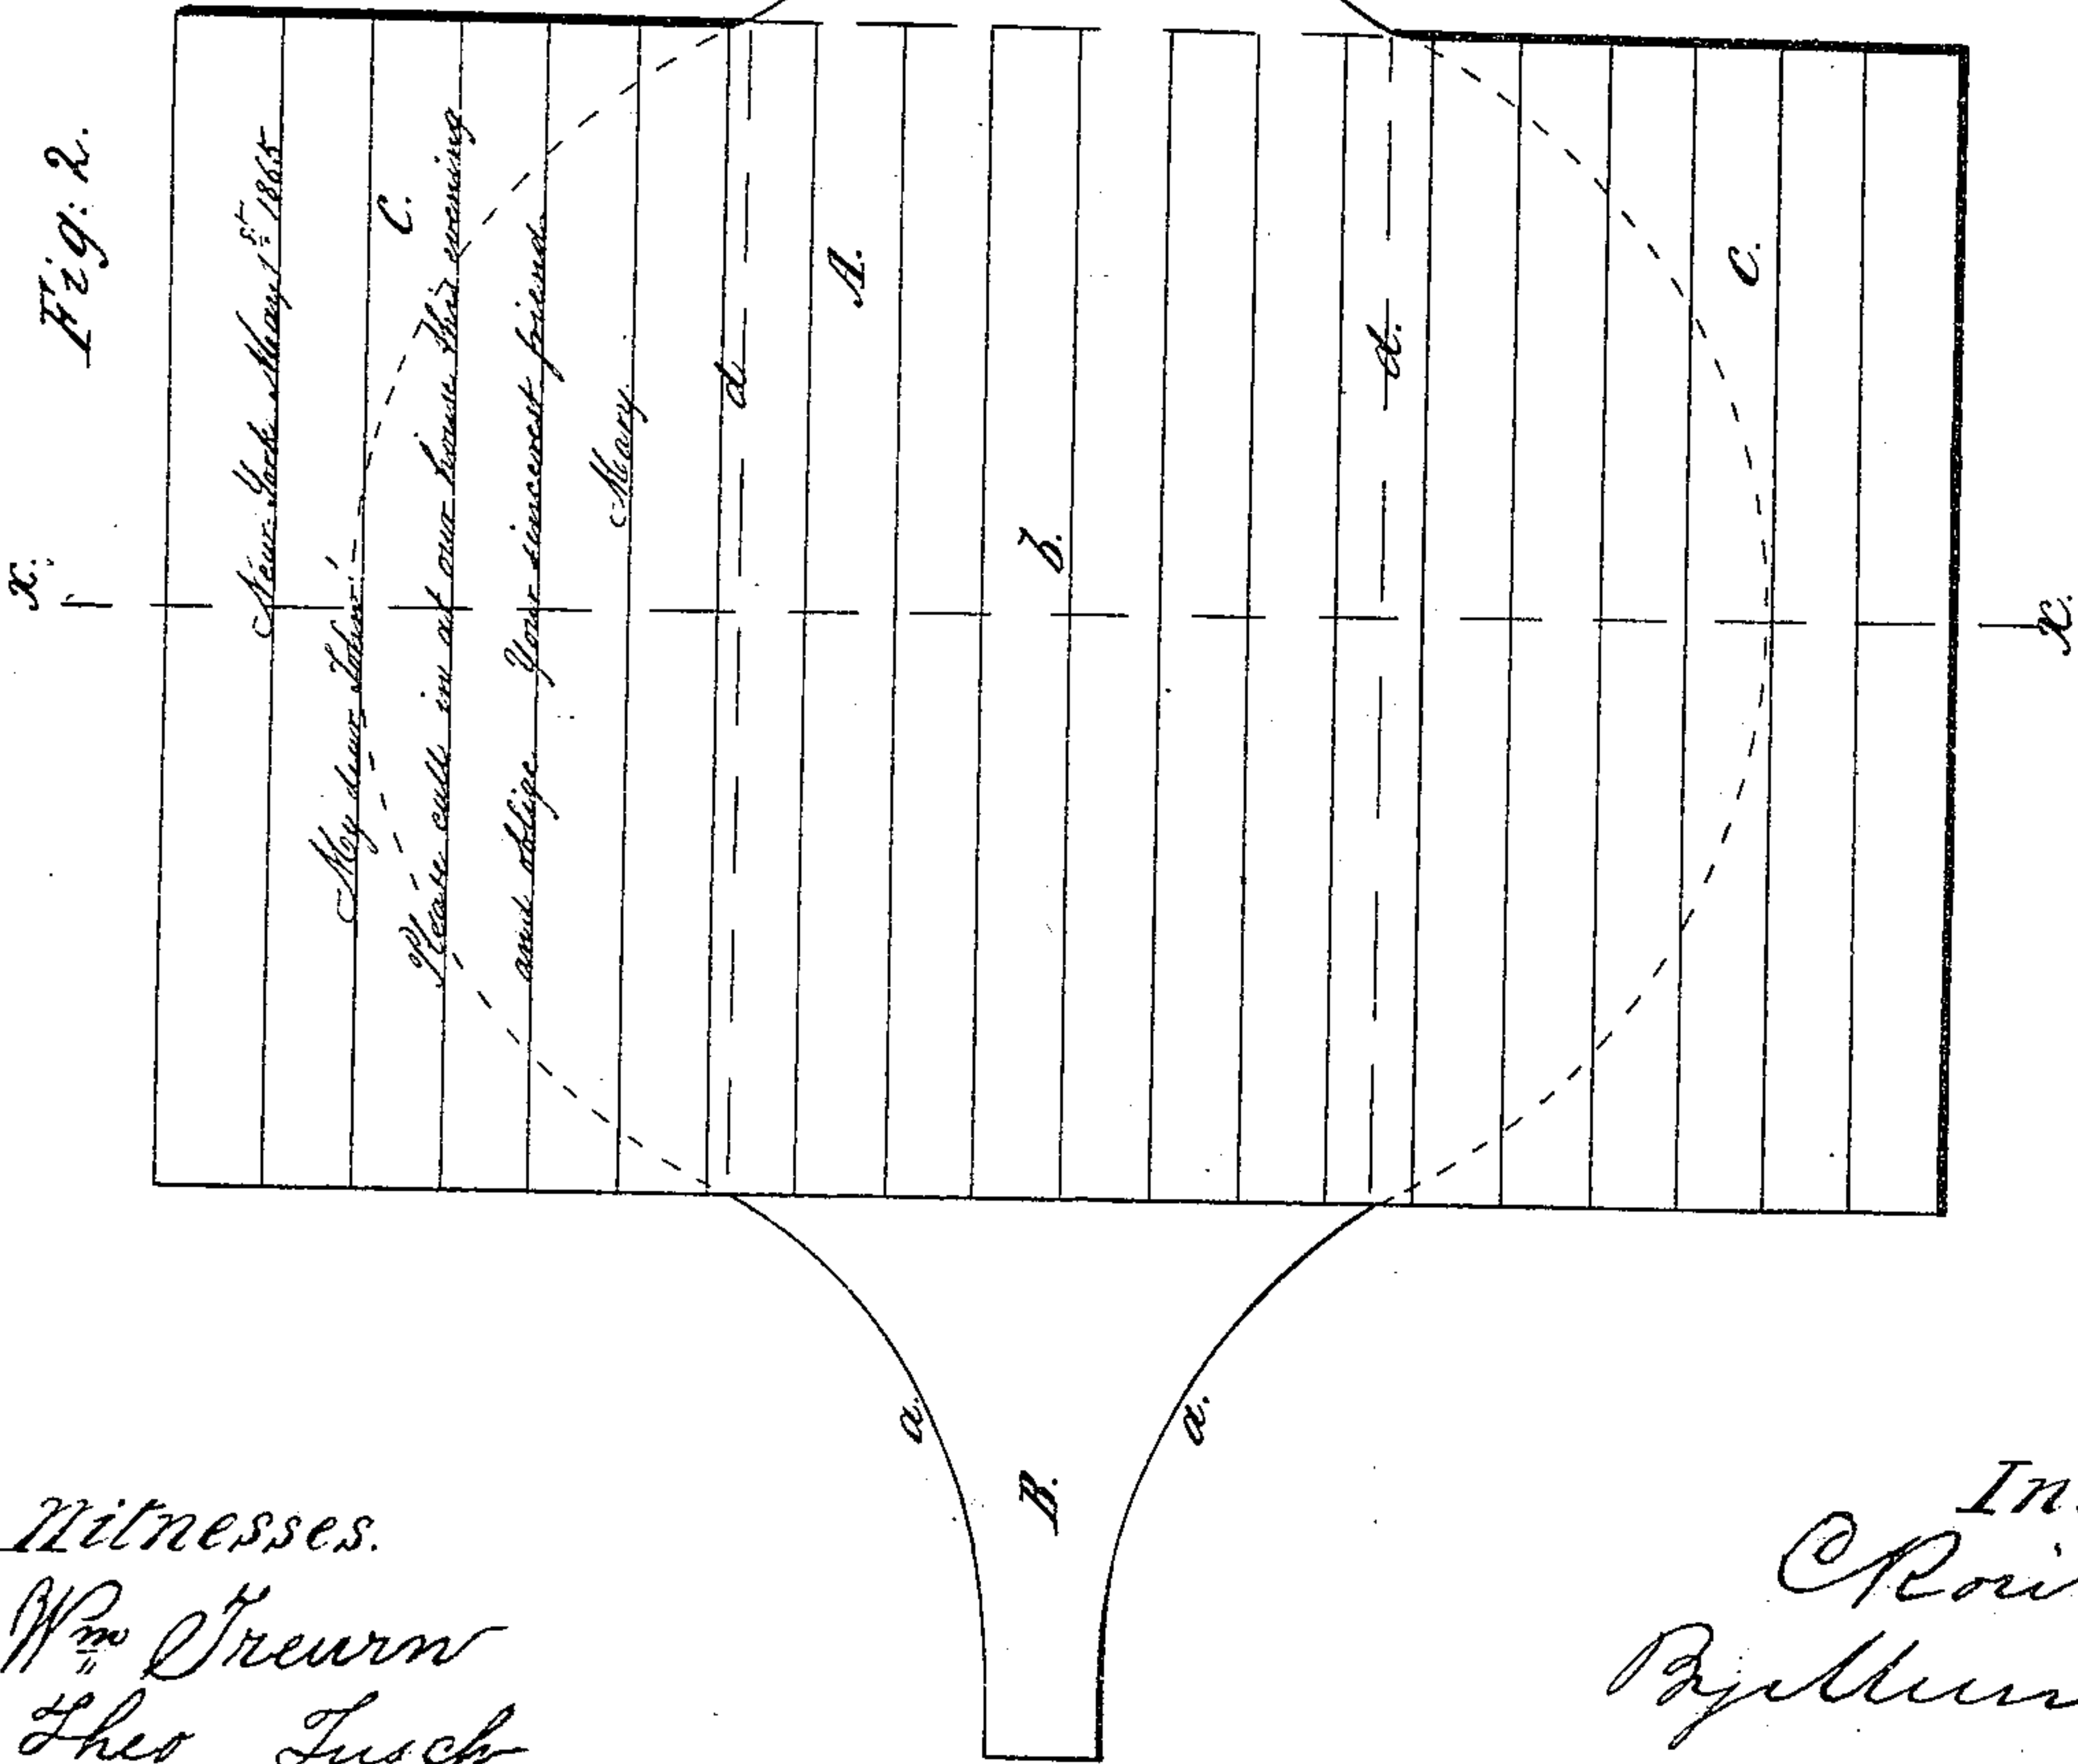 Fig: 2.
x.
New-York May 1st 1865
C.
My dear John!
Please call in at our house this evening
and oblige Your sincerest friend
Mary.
d
A.
b.
d.
C.
x.
a.
a.
B.
Witnesses.
Wm Treurn
Theo Tusch
In
C Roi
By Mun